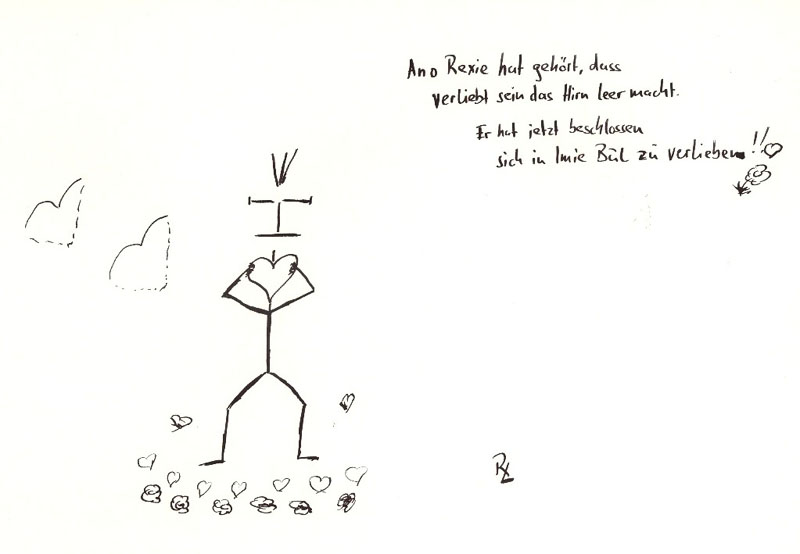 Ano Rexie hat gehört, dass
verliebt sein das Hirn leer macht.
Er hat jetzt beschlossen
sich in Imie Bül zu verlieben!!